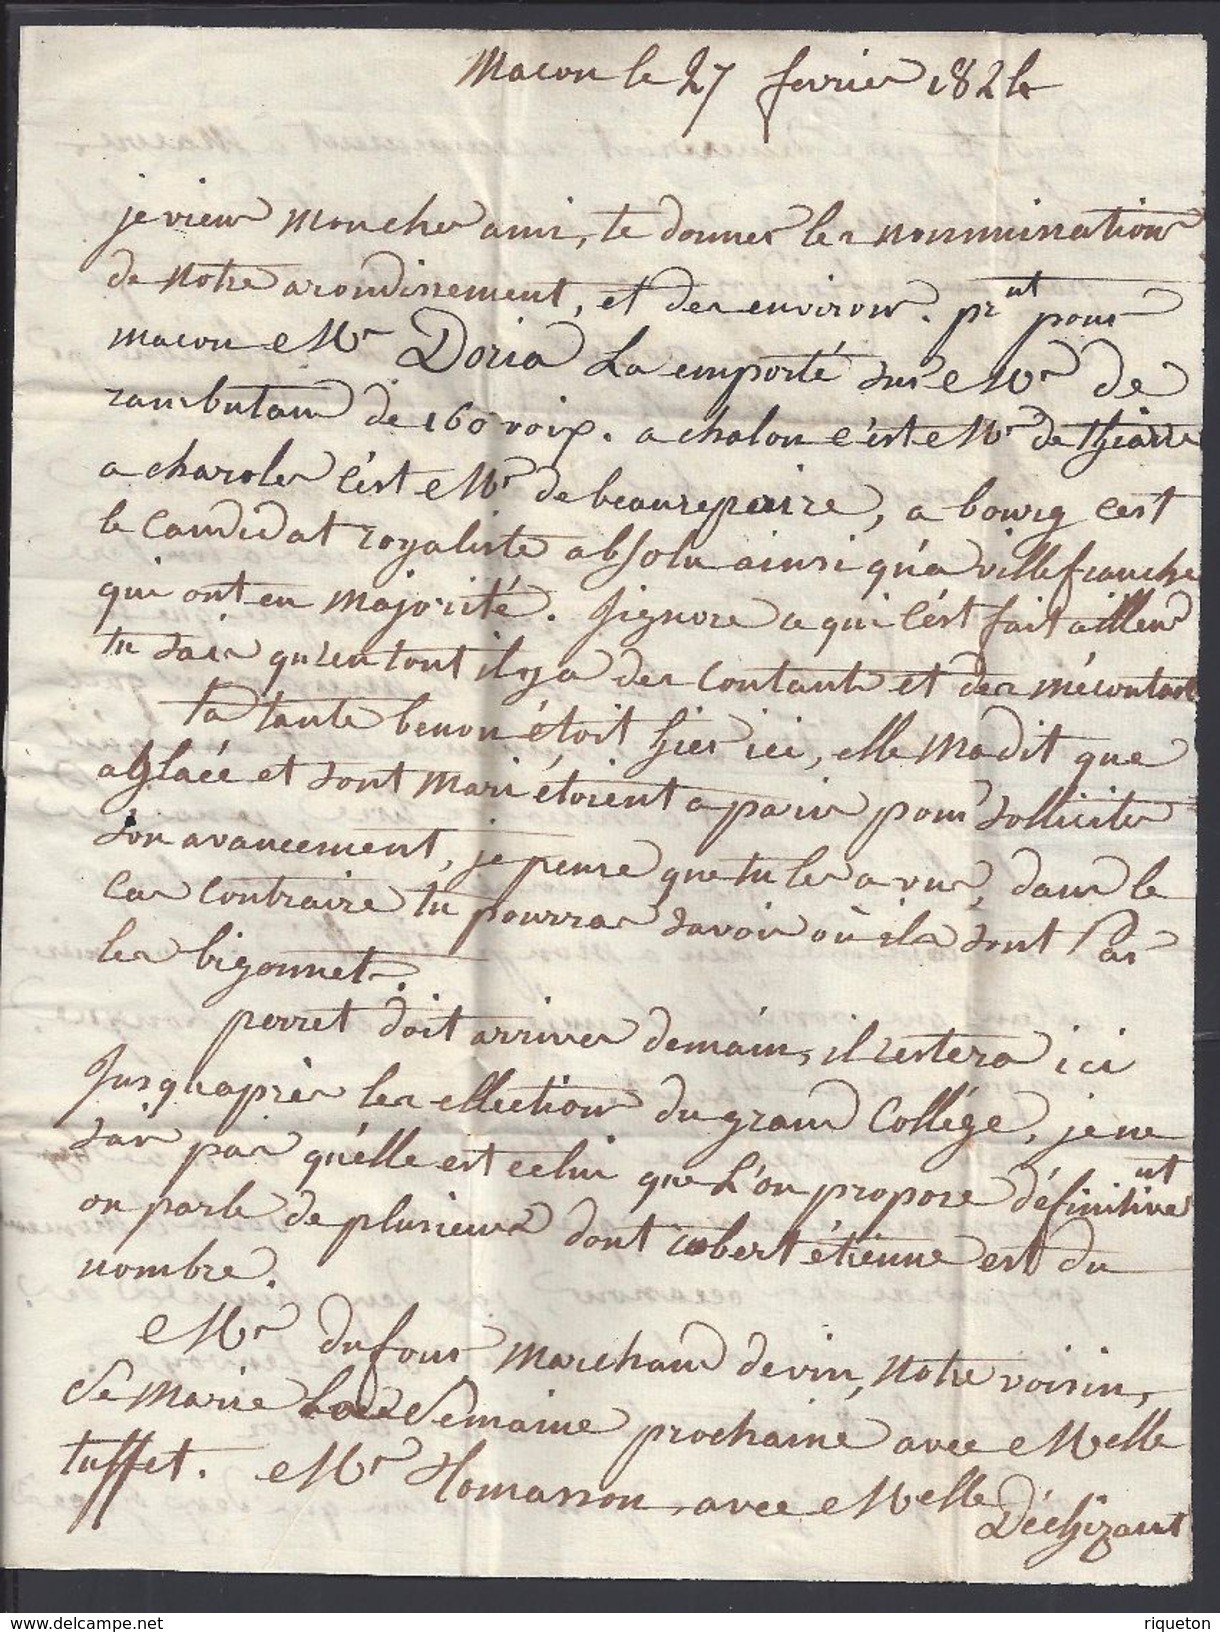 Macon le 27 fevrier 1824
je viens mon cher ami, te donner les nonmination
de notre arondissement, et des environs. prnt pour
macon Mr Doria La emporté sur Mr de
rambutaud de 160 voix. a chalon c'est Mr de thiard
a charoles c'est Mr de beaurepaire, a bourg cest
le Candidat royaliste absolu ainsi qu'a villefranche
qui ont eu Majorité. J'ignore ce qui c'est fait ailleurs
tu sais qu'en tout il y a des contants et des mécontant
ta tante benon étoit hier ici, elle Ma dit que
aglaée et sont Mari étoient a paris pour solliciter
son avancement, je pense que tu les a vus, dans le
cas contraire tu pourras savoir où ils sont Par
les bigonnet.
perret doit arriver demain, il restera ici
Jusqu'apres les ellections du grand Collége, je ne
sais pas qu'élle est celui que L'on propose définitivent
on parle de plusieurs dont étienne est du
nombre.
Mr dufour Marchand de vin, notre voisin,
Se Marie La Semaine prochaine avec Melle
tuffet. Mr Homasson, avec Melle
Déchizaut